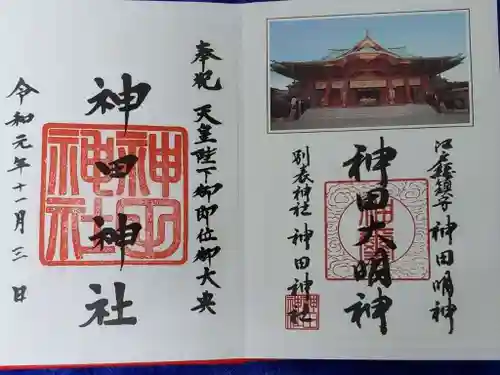 江戸總鎮守 神田明神
神田大明神
別表神社 神田神社
奉祝 天皇陛下御即位御大典
神田神社
神田神社
令和元年十一月三日